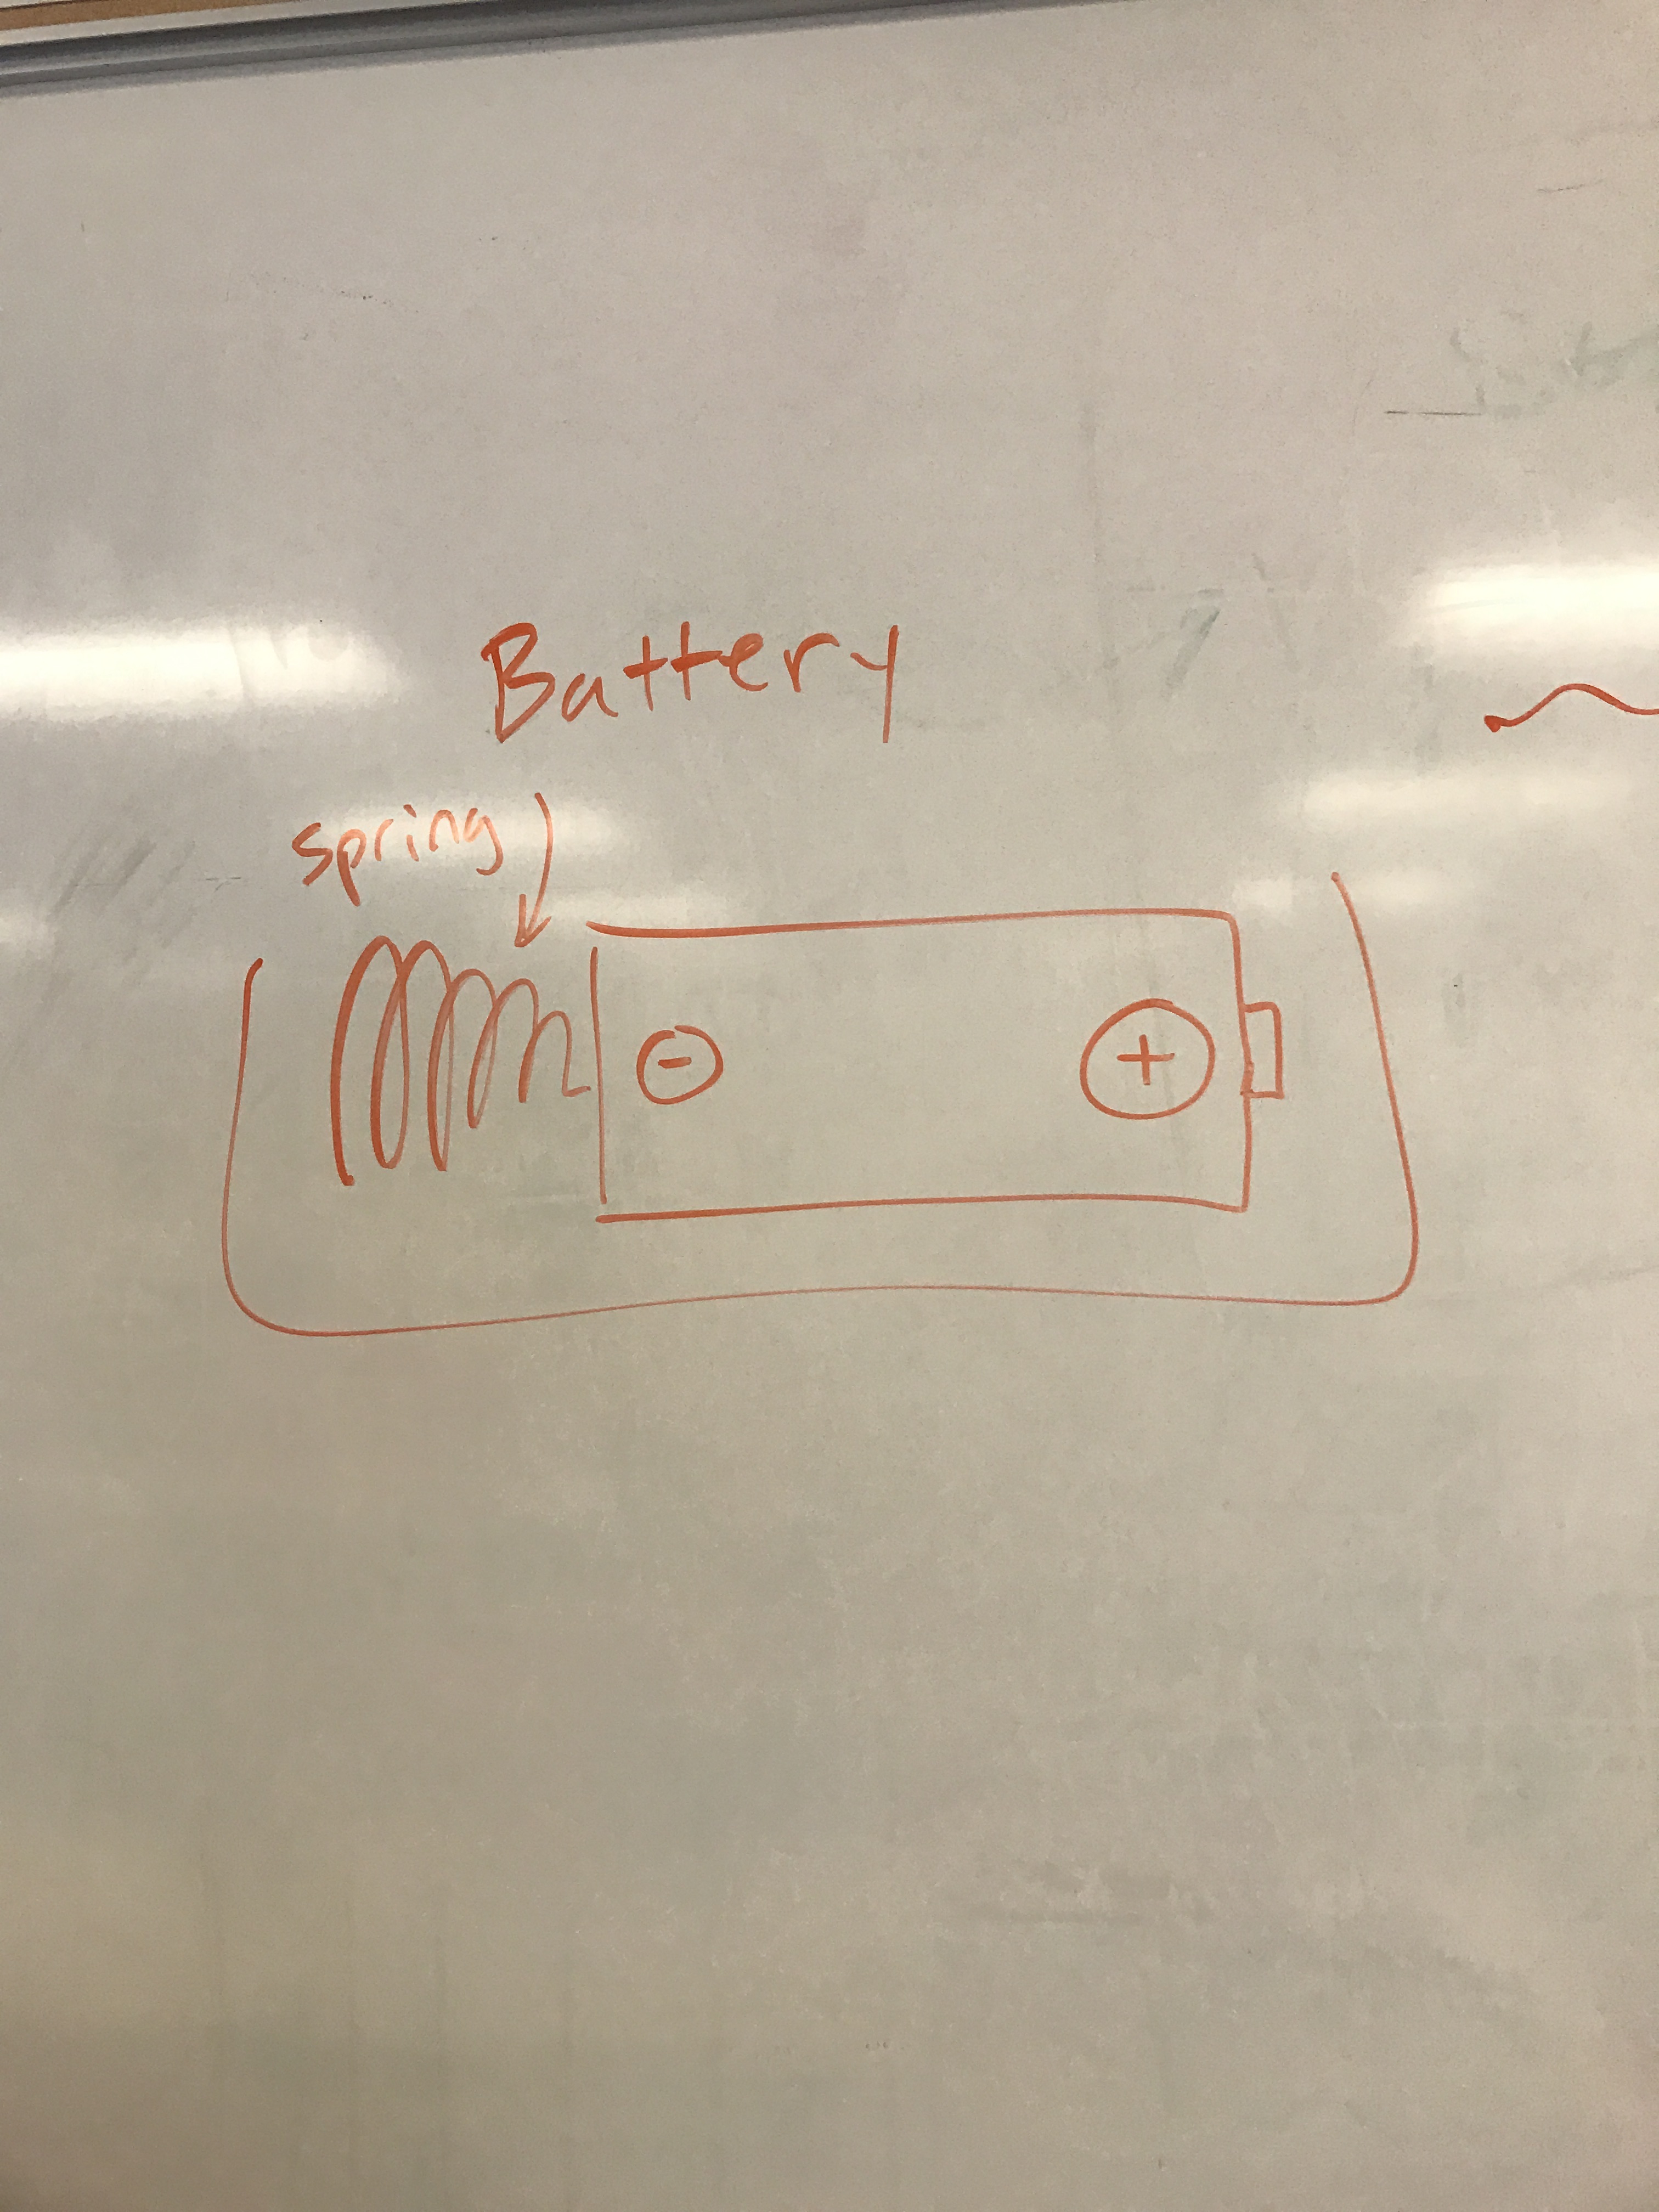 Battery
spring
- +